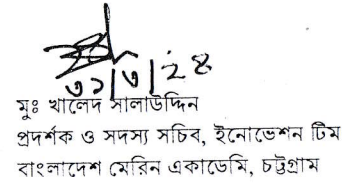 ৩১/৩/২৪
মুঃ খালেদ সালাউদ্দিন
প্রদর্শক ও সদস্য সচিব, ইনোভেশন টিম
বাংলাদেশ মেরিন একাডেমি, চট্টগ্রাম